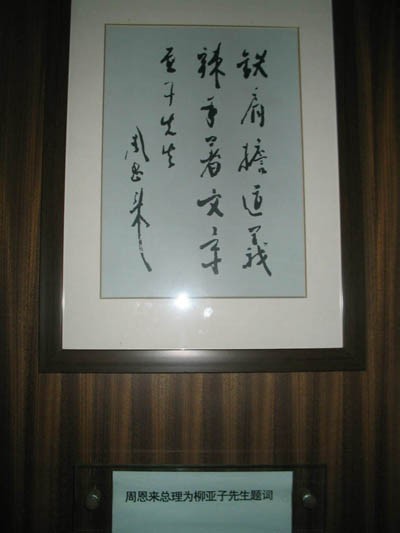 鉄肩擔道義
辣手著文章
亚子先生
周恩来
周恩来总理为柳亚子先生题词